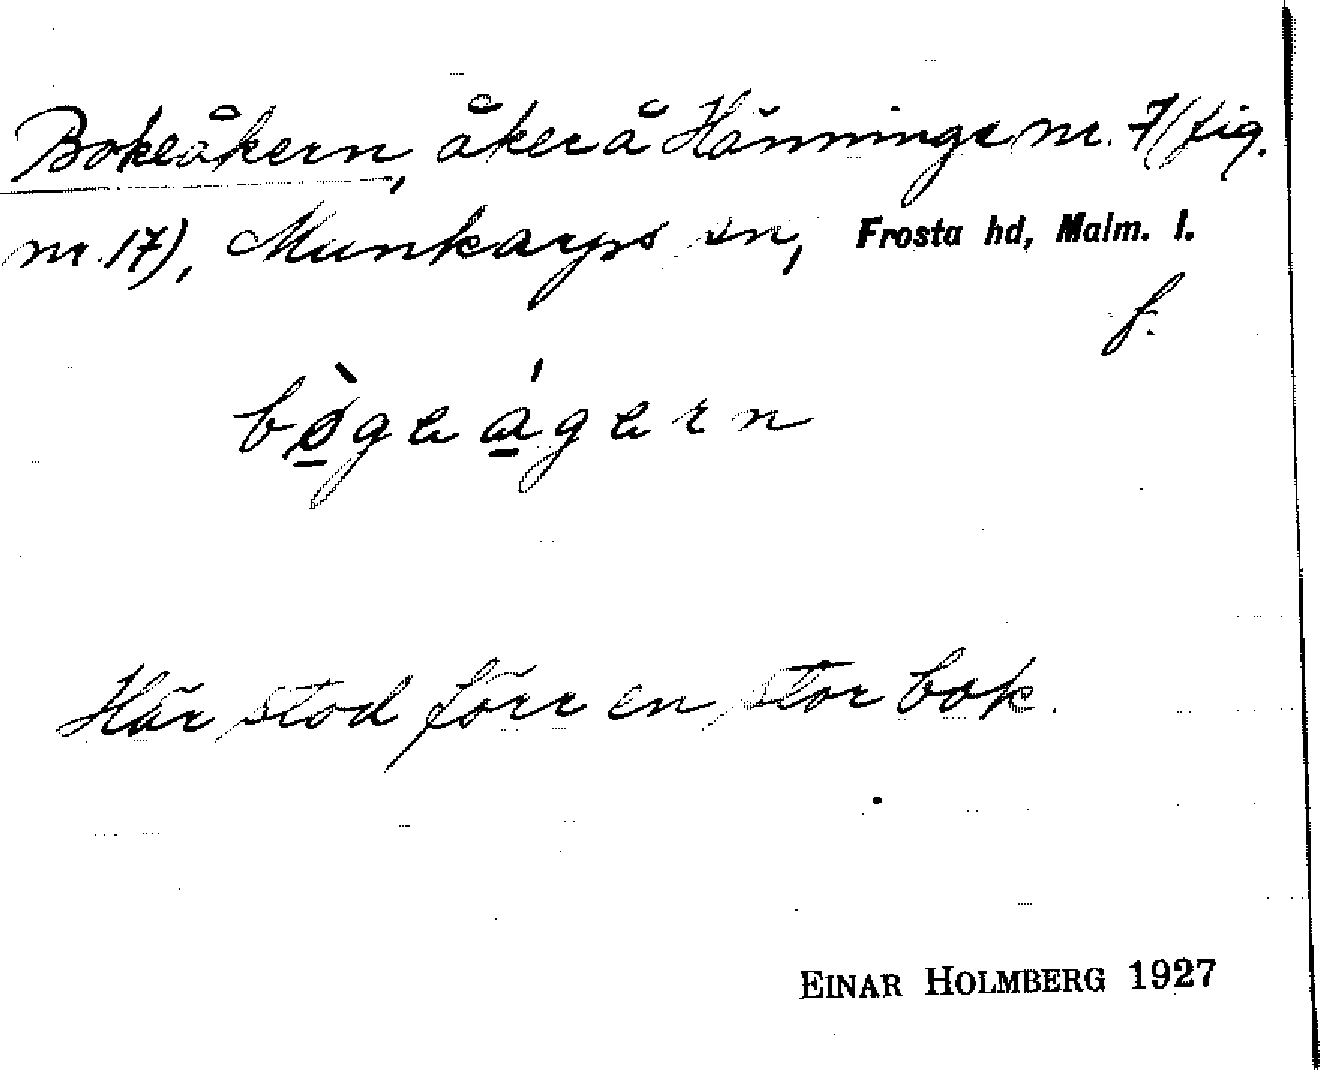 Bokeåkern, åker å Hänninge nr. 7 (fig.
nr. 17), Munkarps sn, Frosta hd, Malm. l.
f.
bògeágern
Här stod förr en stor bok.
EINAR HOLMBERG 1927